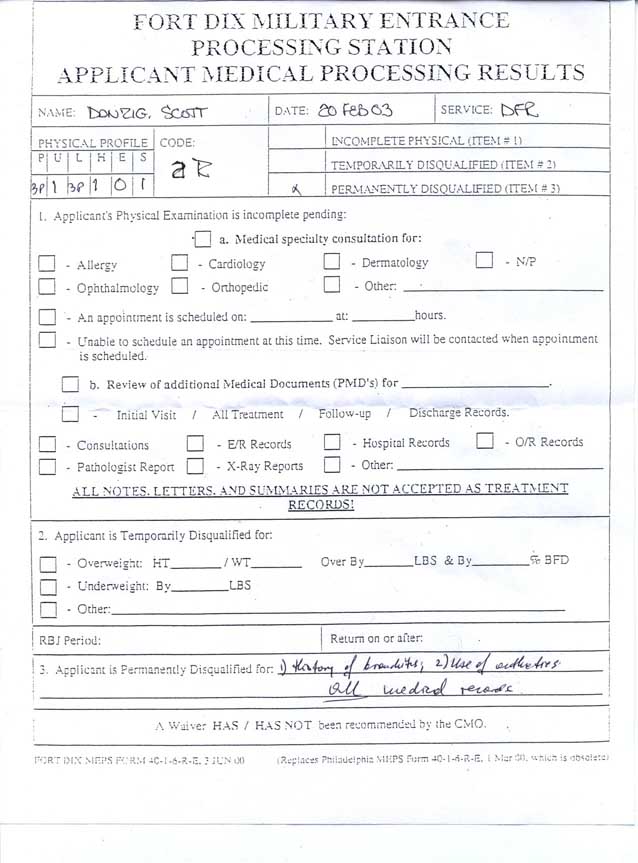 FORT DIX MILITARY ENTRANCE
PROCESSING STATION
APPLICANT MEDICAL PROCESSING RESULTS
NAME: DONZIG, SCOTT DATE: 20 FEB 03 SERVICE: DFR
PHYSICAL PROFILE CODE: INCOMPLETE PHYSICAL (ITEM # 1)
P U L H E S 2R TEMPORARILY DISQUALIFIED (ITEM # 2)
3P 1 3P 1 0 1 X PERMANENTLY DISQUALIFIED (ITEM # 3)
1. Applicant's Physical Examination is incomplete pending:
a. Medical specialty consultation for:
- Allergy - Cardiology - Dermatology - N/P
- Ophthalmology - Orthopedic - Other:
- An appointment is scheduled on: at: hours.
- Unable to schedule an appointment at this time. Service Liaison will be contacted when appointment
is scheduled.
b. Review of additional Medical Documents (PMD's) for .
- Initial Visit / All Treatment / Follow-up / Discharge Records.
- Consultations - E/R Records - Hospital Records - O/R Records
- Pathologist Report - X-Ray Reports - Other:
ALL NOTES, LETTERS, AND SUMMARIES ARE NOT ACCEPTED AS TREATMENT
RECORDS!
2. Applicant is Temporarily Disqualified for:
- Overweight: HT / WT Over By LBS & By % BFD
- Underweight: By LBS
- Other:
RBJ Period: Return on or after:
3. Applicant is Permanently Disqualified for: 1) History of ; 2) Use of
All medical records
A Waiver HAS / HAS NOT been recommended by the CMO.
FORT DIX MEPS FORM 40-1-6-R-E, 3 JUN 00 (Replaces Philadelphia MEPS Form 40-1-6-R-E, 1 Mar 00, which is obsolete)